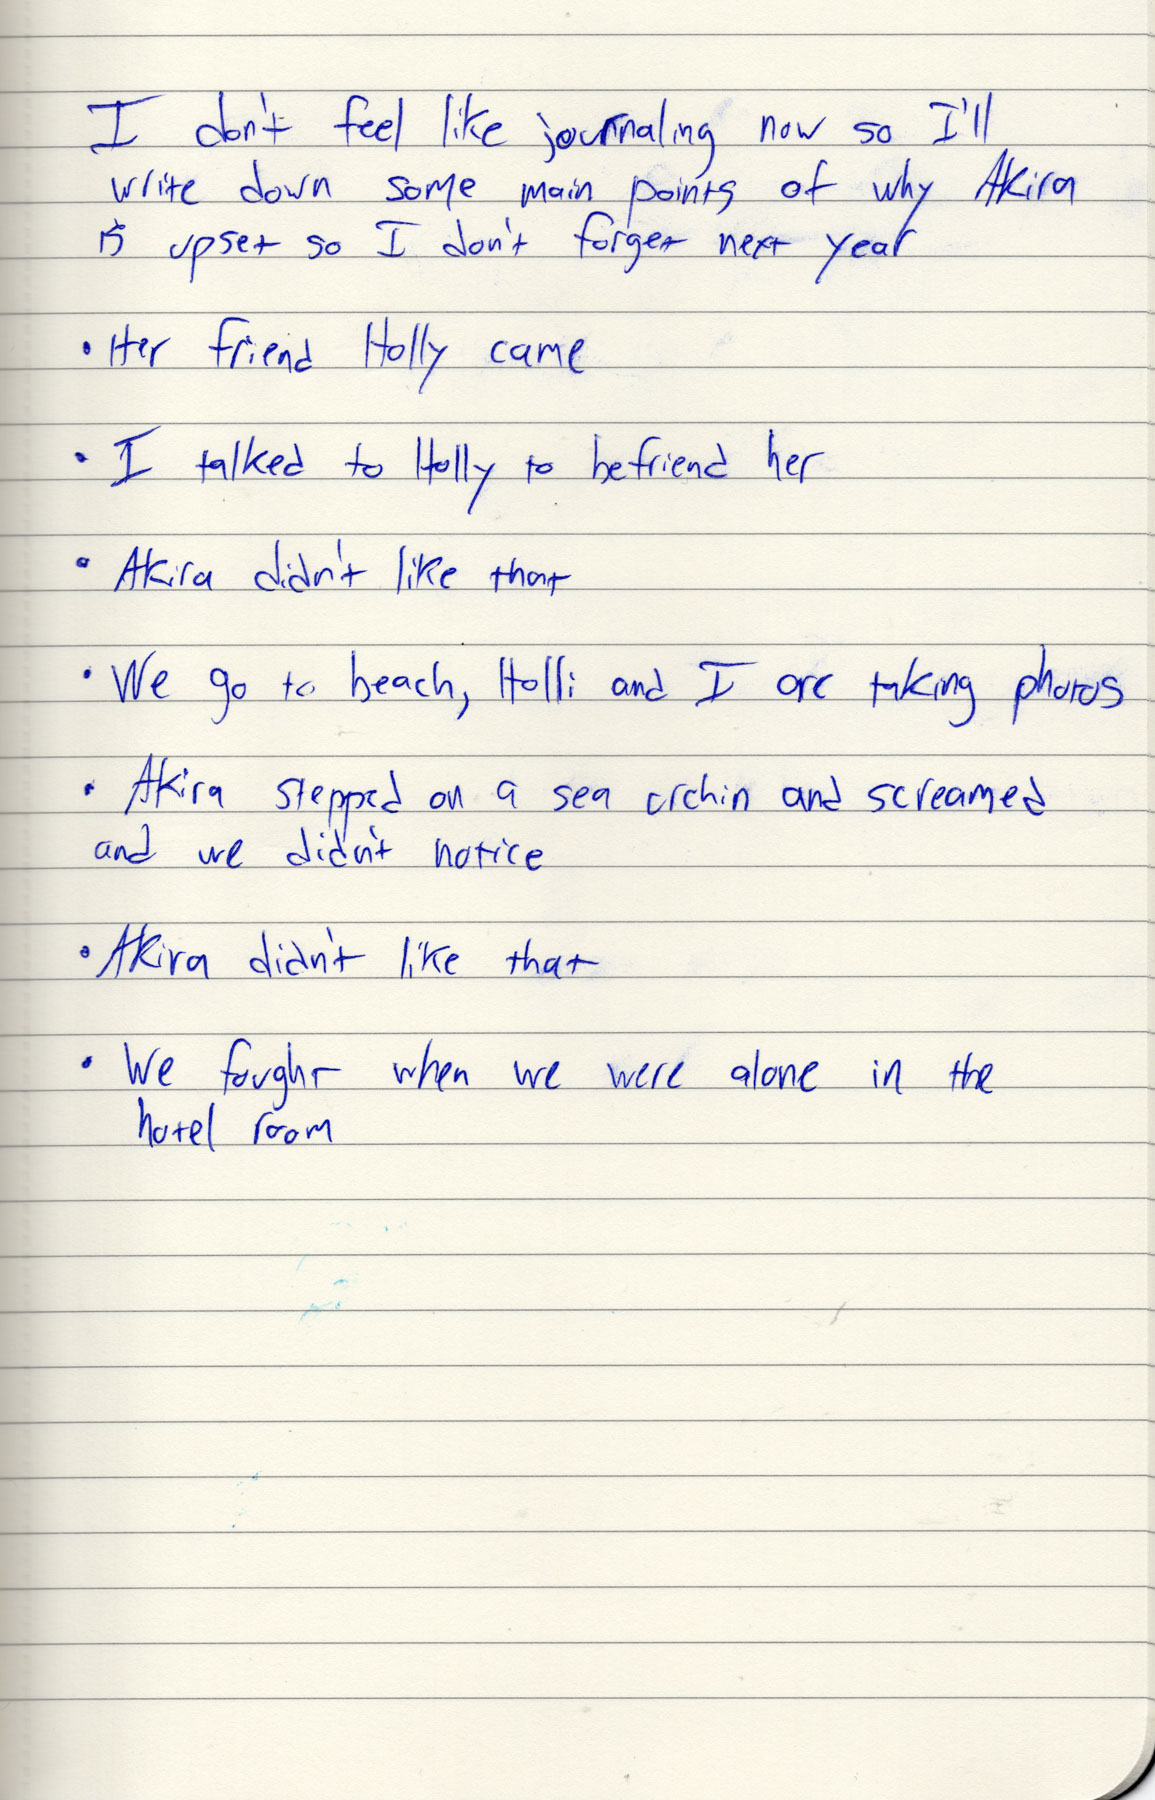 I don't feel like journaling now so I'll
write down some main points of why Akira
is upset so I don't forget next year
• Her friend Holly came
• I talked to Holly to befriend her
• Akira didn't like that
• We go to beach, Holli and I are taking photos
• Akira stepped on a sea urchin and screamed
and we didn't notice
• Akira didn't like that
• We fought when we were alone in the
hotel room